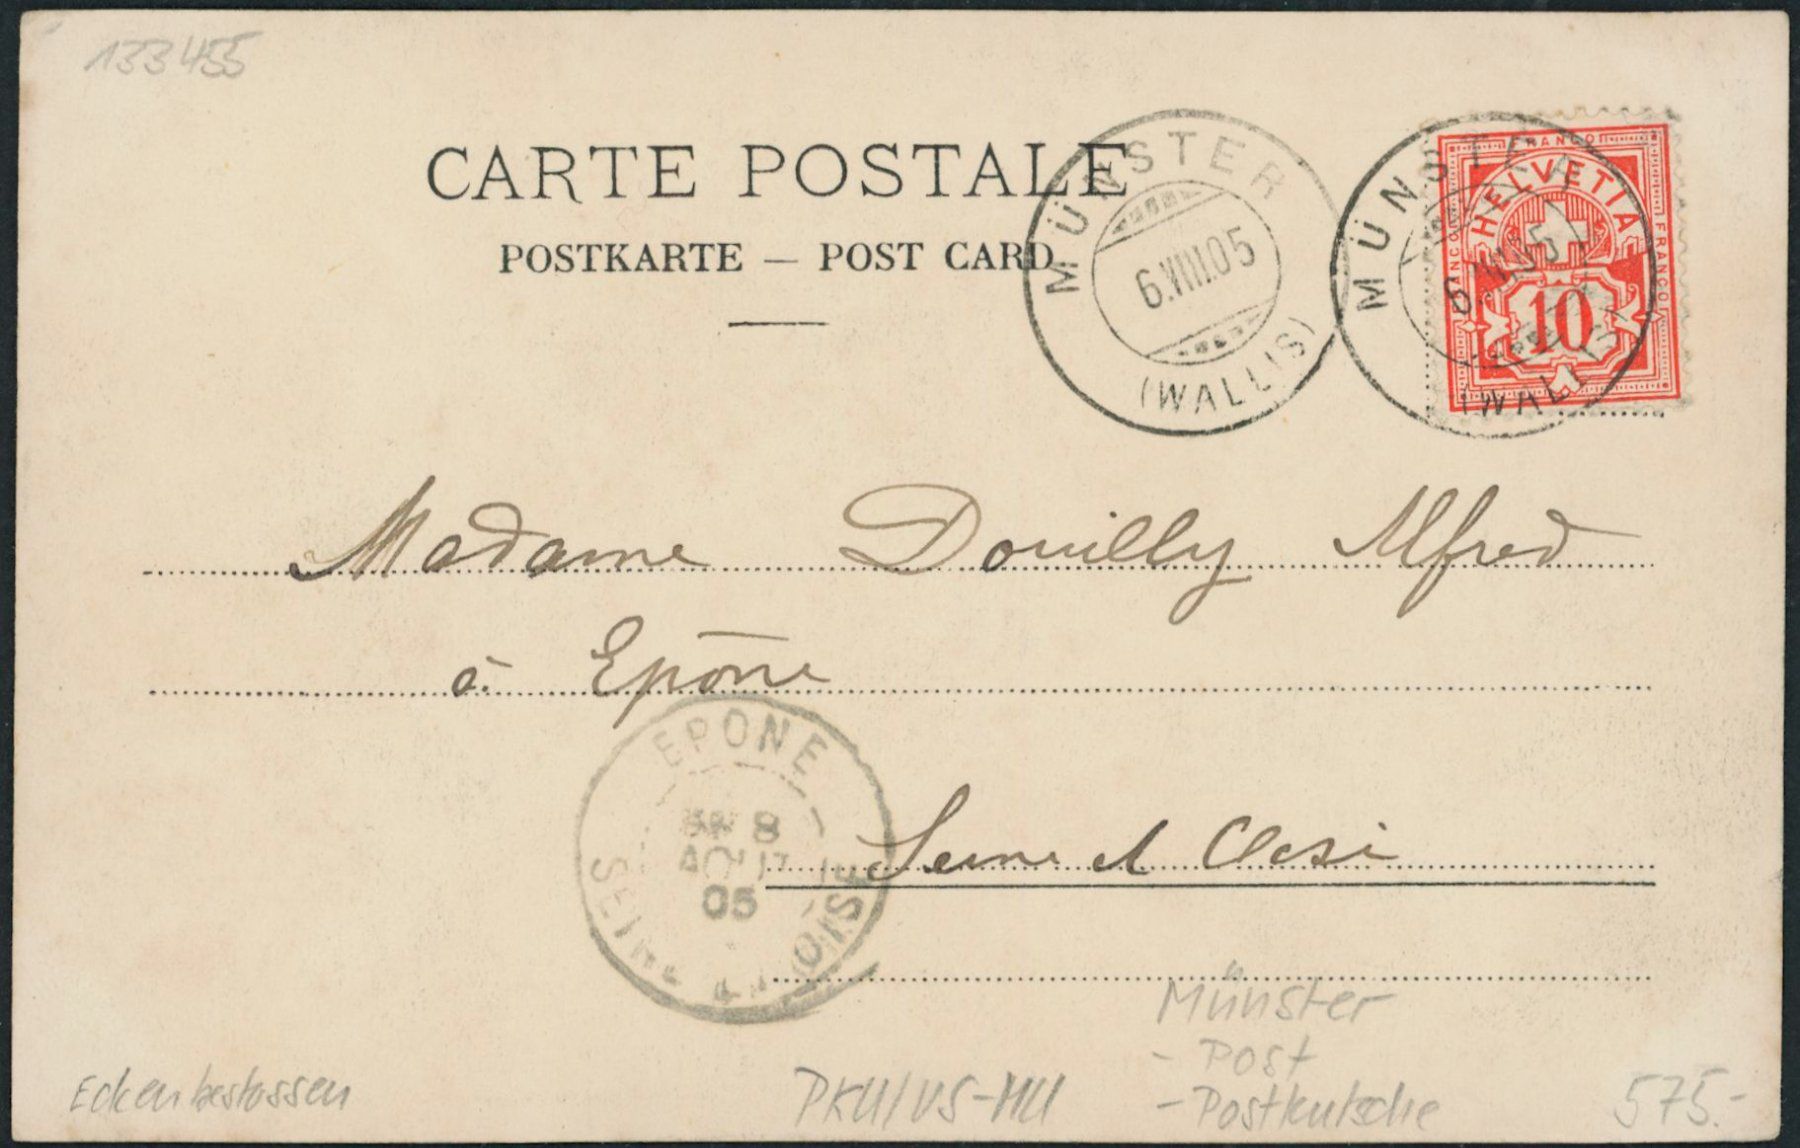 133455
CARTE POSTALE
POSTKARTE — POST CARD
MÜNSTER
6.VIII.05
(WALLIS)
MÜNSTER
6.VIII.05
(WALLIS)
FRANCO
FRANCO
FRANCO
HELVETIA
10
Madame Douilly Alfred
à Epône
EPONE
8
AOUT
05
SEINE ET OISE
Seine et Oise
Münster
- Post
- Postkutsche
Eckenbestossen
PKU/VS-MU
575.-